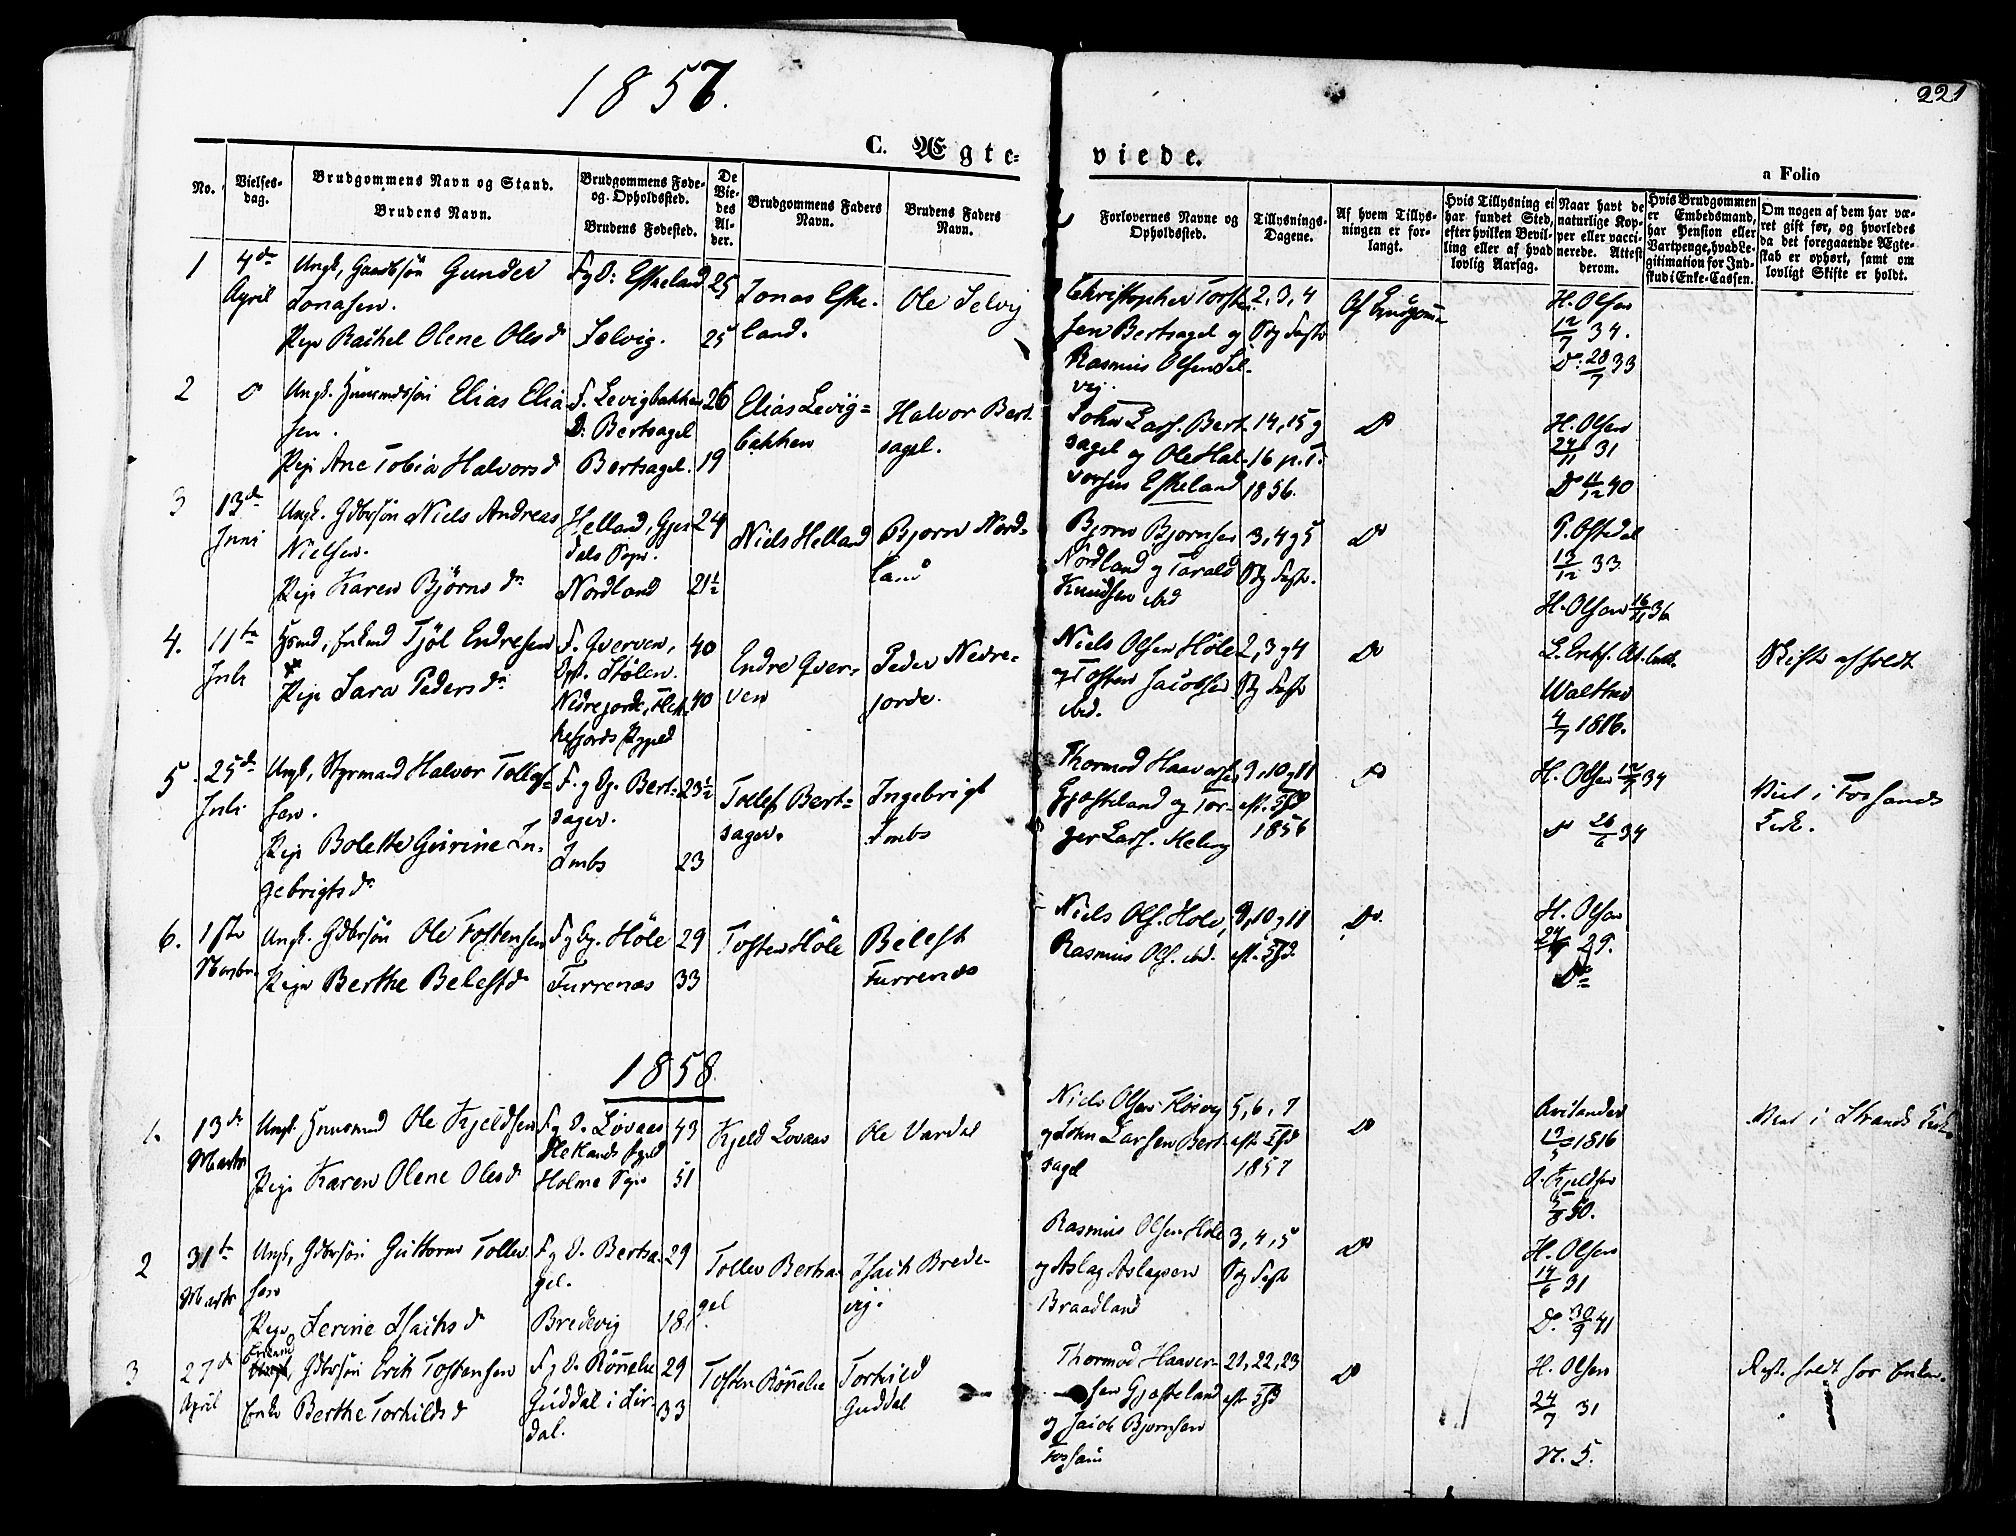 1857.
221
C. Ægte=
viede.
a Folio
No.
Vielses-
dag.
Brudgommens Navn og Stand.
Brudens Navn.
Brudgommens Føde-
og Opholdssted.
Brudens Fødested.
De
Vie-
des
Al-
der.
Brudgommens Faders
Navn.
Brudens Faders
Navn.
Forlovernes Navne og
Opholdssted.
Tillysnings-
Dagene.
Af hvem Tillys-
ningen er for-
langt.
Hvis Tillysning ei
har fundet Sted,
efter hvilken Bevil-
ling eller af hvad
lovlig Aarsag.
Naar havt de
naturlige Kop-
per eller vacci-
nerede. Attest
derom.
Hvis Brudgommen
er Embedsmand,
har Pension eller
Vartpenge, hvad Le-
gitimation for Ind-
skud i Enke-Cassen.
Om nogen af dem har væ-
ret gift før, og hvorledes
da det foregaaende Ægte-
skab er ophørt, samt om
lovligt Skifte er holdt.
1
4de
April
Ungk, Gaardbsøn Gunder
Jonasen.
Pige Rachel Olene Olesd
F. og O: Eskeland
Selvig.
25
25
Jonas Eske-
land.
Ole Selvig
Christopher Torste-
sen Bertsagel og
Rasmus Olsen Sel-
vig.
2, 3, 4
Sdg Faste
Af Brudgom=
H. Olsen
12/7 34.
Do: 28/7 33
2
Do
Ungk. Huusmdssøn Elias Elia-
sen.
Pige Ane Tobia Halvorsd
F. Levigbakken
O: Bertsagel
Bertsagel.
26
19
Elias Levig=
bakken
Halvor Bert
sagel.
John Lars. Bert-
sagel og Ole Hal-
vorsen Eskeland
14, 15 g
16 p. T.
1856.
Do
H. Olsen
24/11 31
Do 11/12 40
3
13de
Juni
Ungk. Gdbrsøn Niels Andreas
Nielsen.
Pige Karen Bjørnsdr
Helland, Gjes-
dals Sogn.
Nordland
24
21½
Niels Helland
Bjørn Nord-
land
Bjørn Bjørnsen
Nordland og Tarald
Knudsen ibd
3, 4 g 5
Sdg Faste.
Do
T. Oftedal
13/12 33.
H. Olsen 16/11 36
4.
11te
Juli
Hsmd, Enkmd Tjøl Endresen
Pige Sara Pedersdr
F. Qverven,
Opt. Stølen.
Nedrejorde, Flek-
kefjords Pgjeld
40
40
Endre Qver-
ven
Peder Nedre-
jorde.
Niels Olsen Høle
og Tosten Jacobsen
ibd.
2, 3 g 4
Sdg Faste
Do
Walther
4/7 1816.
Skifte afholdt
5.
25de
Juli
Ungk, Styrmand Halvor Tollefs=
sen.
Pige Bolette Geirine In-
gebrigtsdr
F. og O. Bert-
sagel.
Imbs
23½
23
Tollef Bert=
sagel.
Ingebrigt
Imbs
Thormod Haaversen
Gjøsteland og Tor-
ger Lars. Meling
9, 10 g 11
eft. Tfd
1856
Do
H. Olsen 12/7 34
Do 26/6 34
Viet i Fossands
Kirk.
6.
1ste
Novbr
Ungk. Gdbrsøn Ole Tostensen
Pige Berthe Belestd
F og O. Høle
Furrenæs
29
33
Tosten Høle
Belest
Furrenæs
Niels Ols. Høle,
Rasmus Ols. ibd.
9, 10 g 11
eft. Tfd.
Do.
H. Olsen
24/9 29.
Do
1858.
1.
13de
Marts
Ungk. Huusmd Ole Kjeldsen
Pige Karen Olene Olesd
F og O. Lovaas
Hetlands Pgjeld
Holme Sogn
43
51
Kjeld Lovaas
Ole Vardal
Niels Olsen Høievig
og John Larsen Bert-
sagel
5, 6, 7
eft. Tfd
1857
Do
Arilander
13/5 1816
O. Kjeldsen
5/8 50.
Viet i Strands Kirk.
2
31te
Marts
Ungk, Gdbrsøn Guttorm Tollev
sen
Pige Serine Isachsd
F og O. Bertsa-
gel.
Bredevig
29
18.
Tollev Bertsa
gel
Isach Brede-
vig.
Rasmus Olsen Høle
og Aslag Aslagsen
Braadland
3, 4, 5
Sdg Faste
Do
H. Olsen
14/6 31
Do. 30/9 41
3
27de
April
Enkemd
Gdbrsøn Erik Tostensen
Enke Berthe Torkildsd
F og O. Rønnelie
Guddal i Lir-
dal.
29
33
Tosten Rønnelie
Torkild
Guddal
Thormod Haaver-
sen Gjøsteland
og Jacob Bjørnsen
Fossan
21, 22, 23
eft Tfd
Do
H. Olsen
24/7 31
N. 5.